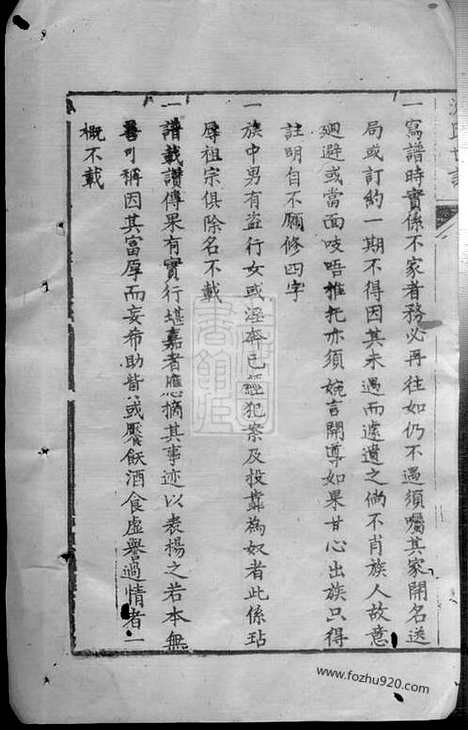 一寫譜時實係不家者務必再往如仍不遇須囑其家開名送
局或訂約一期不得因其未遇而遽遺之倘不肖族人故意
廻避或當面吱唔推托亦須婉言開導如果甘心出族只得
註明自不願修四字
一族中男有盗行女或淫奔已經犯案及投靠為奴者此係玷
辱祖宗俱除名不載
一譜載讚傳果有實行堪嘉者應摘其事迹以表楊之若本無
善可稱因其富厚而妄希助貲或饜飫酒食虛譽過情者一
概不載
www.fozhu920.com